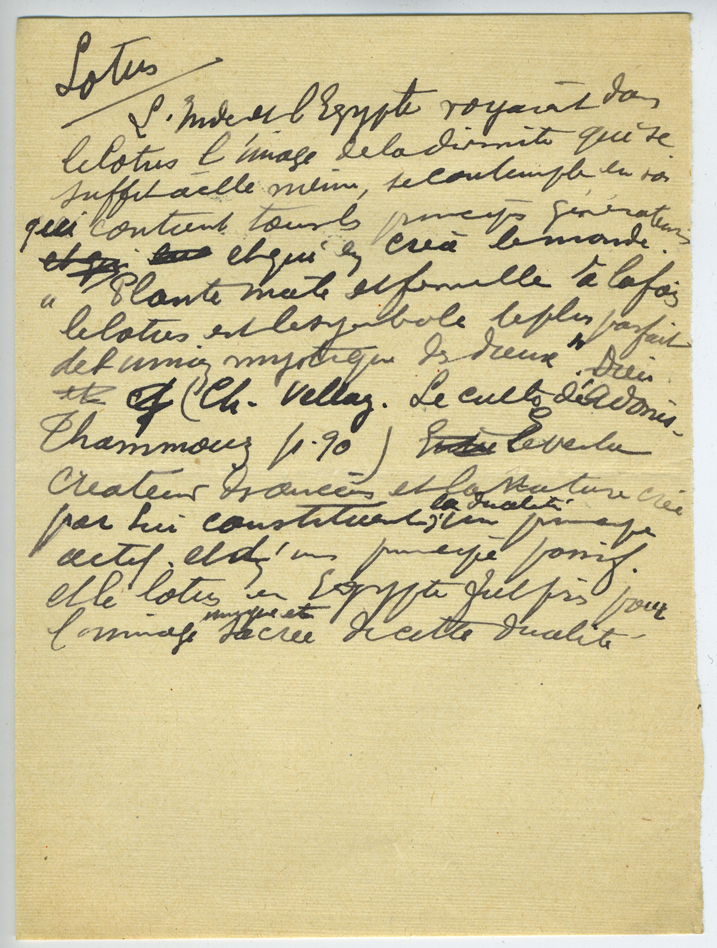 Lotus
L'Inde et l'Egypte voyaient dans
le lotus l'image de la divinité qui se
suffit à elle même, se contemple en soi
qui contient tous les principes générateurs
et qui en créa le monde.
" Plante mâle et femelle à la fois
le lotus est le symbole le plus parfait
de l'union mystique des dieux".
(Ch. Vellay. Le culte d'Adonis-
Thammouz p.90) le verbe
créateur et la Nature créée
par lui constituent la dualité d'un principe
actif et d'un principe passif.
et le lotus en Egypte fut pris pour
l'image unique et sacrée de cette dualité